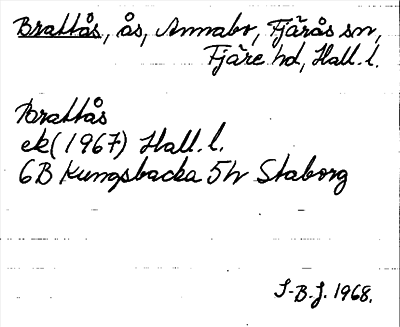 Brattås, ås, Annabo, Fjärås sn,
Fjäre hd, Hall. l.
Brattås
ek (1967) Hall. l.
6B Kungsbacka 5h Staborg
S-B.J. 1968.